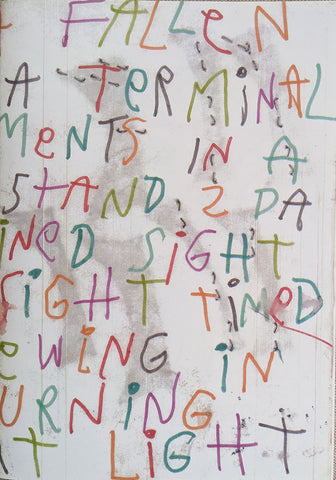 FALLeN
A TeRMiNAL
MeNTS IN A
STAND 2 DA
INeD SiGHT
SiGHT TiMeD
eWiNG iN
URNiNG
T LiGHT